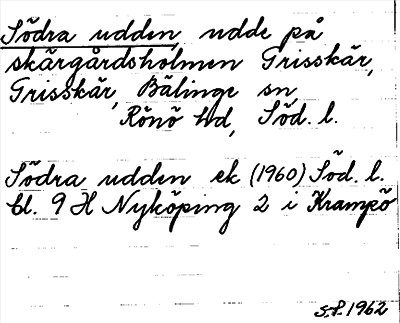 Södra udden, udde på
skärgårdsholmen Grisskär,
Grisskär, Bälinge sn
Rönö hd, Söd. l.
Södra udden ek (1960) Söd. l.
bl. 9 H Nyköping 2 i Krampö
S.P. 1962